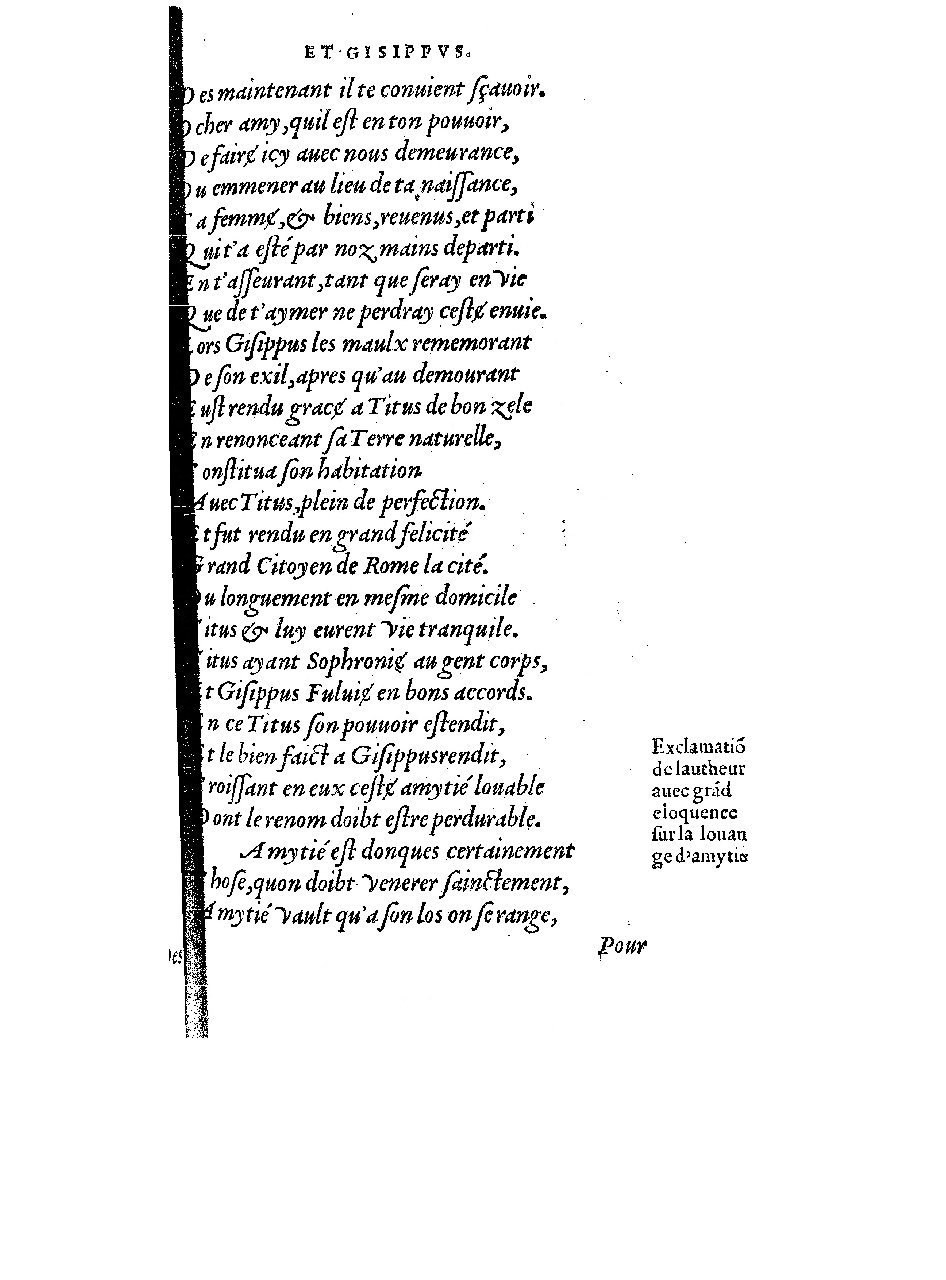 ET GISIPPVS.
Des maintenant il te conuient sçauoir.
O cher amy, quil est en ton pouuoir,
De fairɇ icy auec nous demeurance,
Ou emmener au lieu de ta naissance,
Ta femmɇ, & biens, reuenus, et parti
Qui t'a esté par noz mains departi.
En t'asseurant, tant que seray en vie
Que de t'aymer ne perdray cestɇ enuie.
Lors Gisippus les maulx rememorant
De son exil, apres qu'au demourant
Eust rendu gracɇ a Titus de bon zele
En renonceant sa Terre naturelle,
Constitua son habitation
Auec Titus, plein de perfection.
Et fut rendu en grand felicité
Grand Citoyen de Rome la cité.
Ou longuement en mesme domicile
Titus & luy eurent vie tranquile.
Titus ayant Sophroniɇ au gent corps,
Et Gisippus Fuluiɇ en bons accords.
En ce Titus son pouuoir estendit,
Et le bien faict a Gisippus rendit,
Croissant en eux cestɇ amytié louable
Dont le renom doibt estre perdurable.
Amytié est donques certainement
Chose, quon doibt venerer sainctement,
Amytié vault qu'a son los on se range,
Pour
Exclamatiõ
de lautheur
auec grãd
eloquence
sur la louan
ge d'amytie